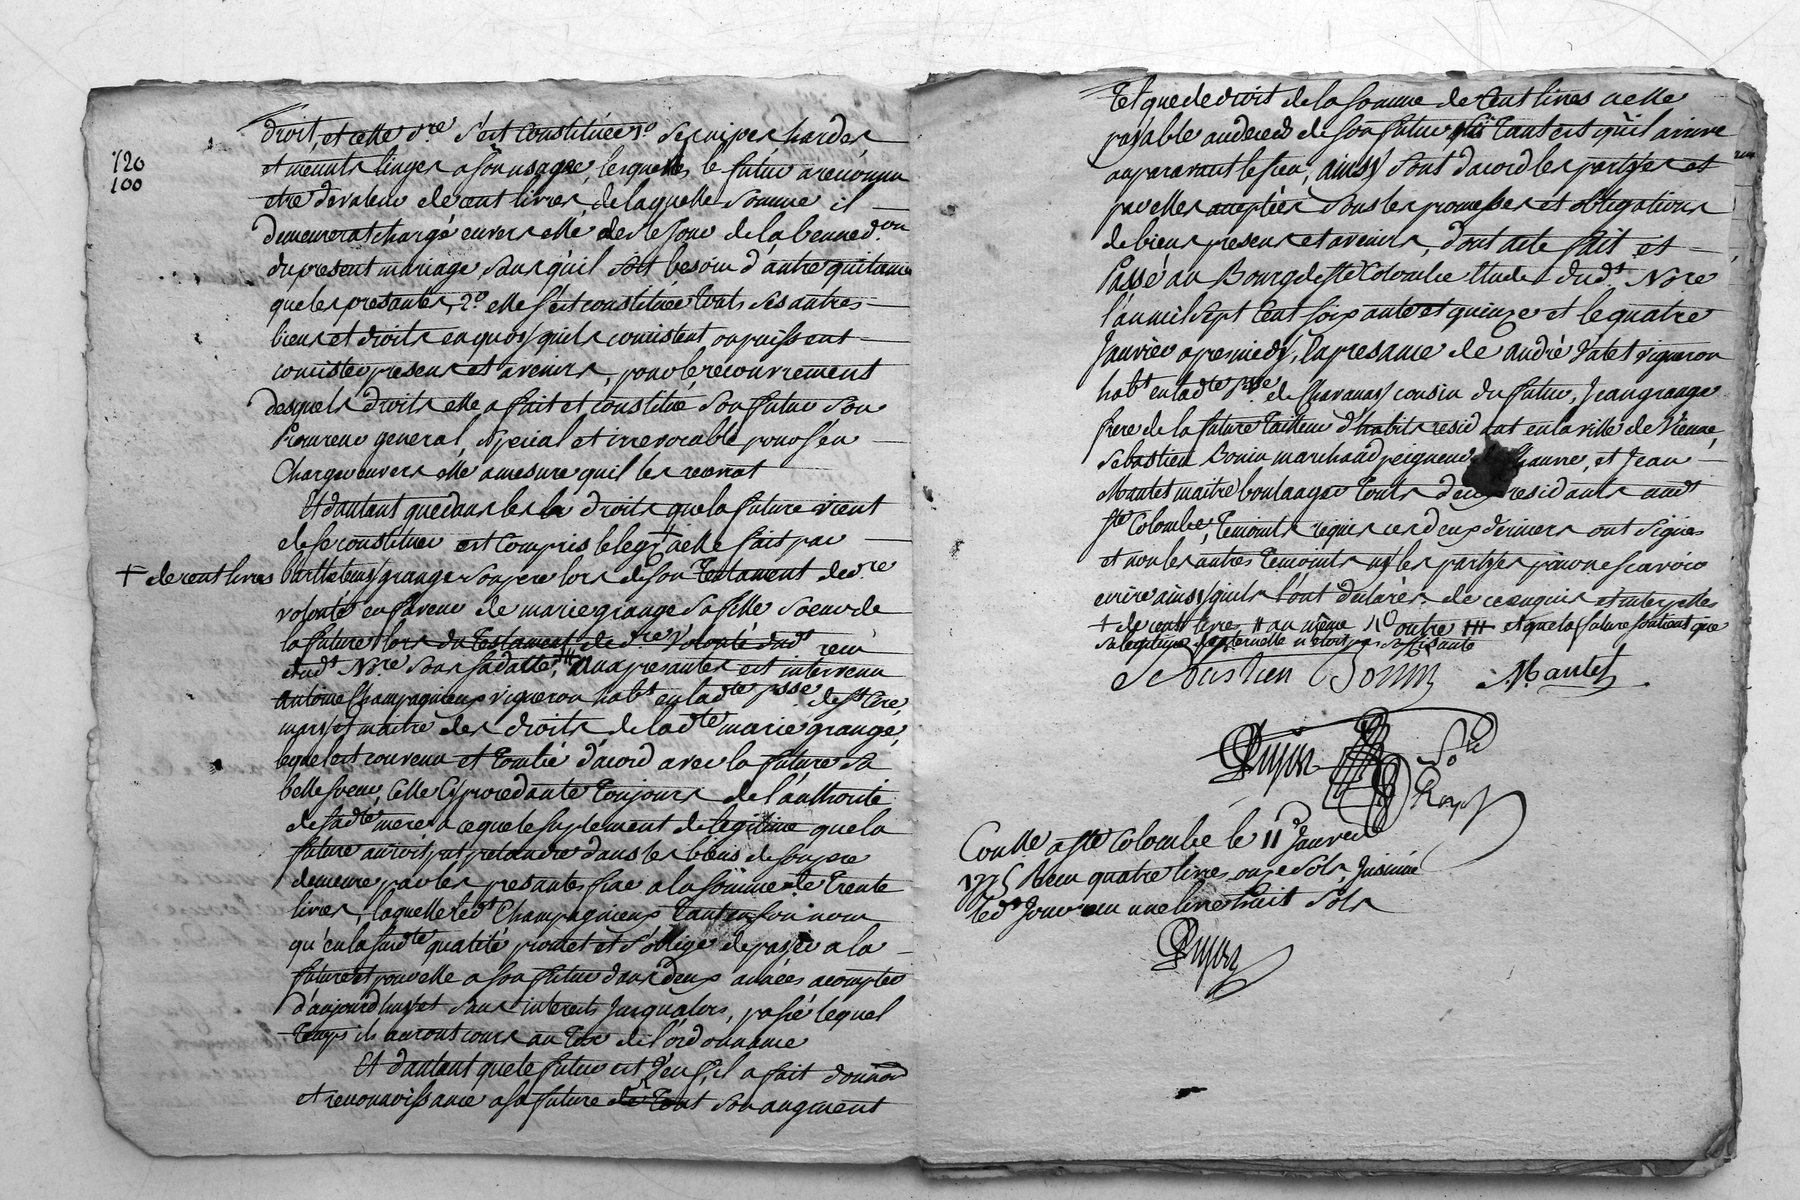 120
100
droit, et cette dre s'est Constituée 1o ses nipes, hardes,
et menuts linges a son usage, lesquelles le futur a reconnu
etre de valeur de cent livres, de laquelle somme il
demeurerat chargé envers elle des le jour de la bennedon
du present mariage sans qu'il soit besoin d'autre quitance
que les presantes, 2o elle s'est constituée touts ses autres
biens et droits en quoy quils consistent ou puissent
consister presens et avenirs, pour le recouvrement
desquels droits elle a fait et constitué son futur son
Procureur general, special et irrevocable pour s'en
Charger envers elle a mesure quil les recevrat
Et d'autant que dans les droits que la future vient
de se constituer est compris le legt a elle fait par
+ de cent livres Barthelemy grange son pere lors de son testament de dre
volonté en faveur de marie grange sa fille soeur de
la future lors du testament de dre volonté dudt reçu
dudt Nre sous sa datte, aux presantes est intervenu
Antoine Champagnieux vigneron habt en ladte psse de st Cire,
mary et maitre des droits de ladte marie grange,
lequel est convenu et tombé d'acord avec la future sa
belle soeur, Celle Cy procedante toujours de l'authorité
de sadte mere a ce que le suplement de legitime que la
future auroit put pretandre dans les biens de son pere
demeure par les presantes fixé a la somme de trente
livres, laquelle ledt Champagnieux tant en son nom
qu'en la susdte qualité promet et s'oblige de payer a la
future et pour elle a son futur dans deux années a compter
d'aujourd'huy et sans interets jusqualors, passé lequel
temps ils auront cours au taux de l'ordonnance
Et d'autant que le futur est veuf, il a fait donnaon
et reconnoissance a sa future de tout son augment
tel que de droit de la somme de Cent livres a elle
payable au deced de son futur tant est qu'il arrive
auparavant le sien, ainsy sont d'acord les partyes et
par elles acceptées sous les promesses et obligations
de biens presens et avenirs, dont acte fait et
Passé au Bourg de ste Colombe Etude dudt Nre
l'an mil sept cent soixante et quinze et le quatre
Janvier apres midy, la presance de andré vatet vigneron
habt en ladte psse de Chavanay cousin du futur, Jean grange
frere de la future tailleur d'habits residant en la ville de Vienne,
Sebastien Bonin marchand peigneur de Chanvre, et Jean
Mantet maitre boulanger touts deux residants audt
ste Colombe, temoints requis ces deux derniers ont signés
et non les autres temoints ny les partyes pour ne scavoir
ecrire ainsy quils l'ont declarés de ce enquis et interpellés
+ de cent livres # au même no outre ### et que la future soutient que
sa legitime paternelle n'etoit pas suffisante
Sebastien Bonin Mantet
Dujon
Conlle a ste Colombe le 11e Janvier
1775 Reçu quatre livres onze sols, Insinué
ledt Jour reçu une livre huit sols
Dujon